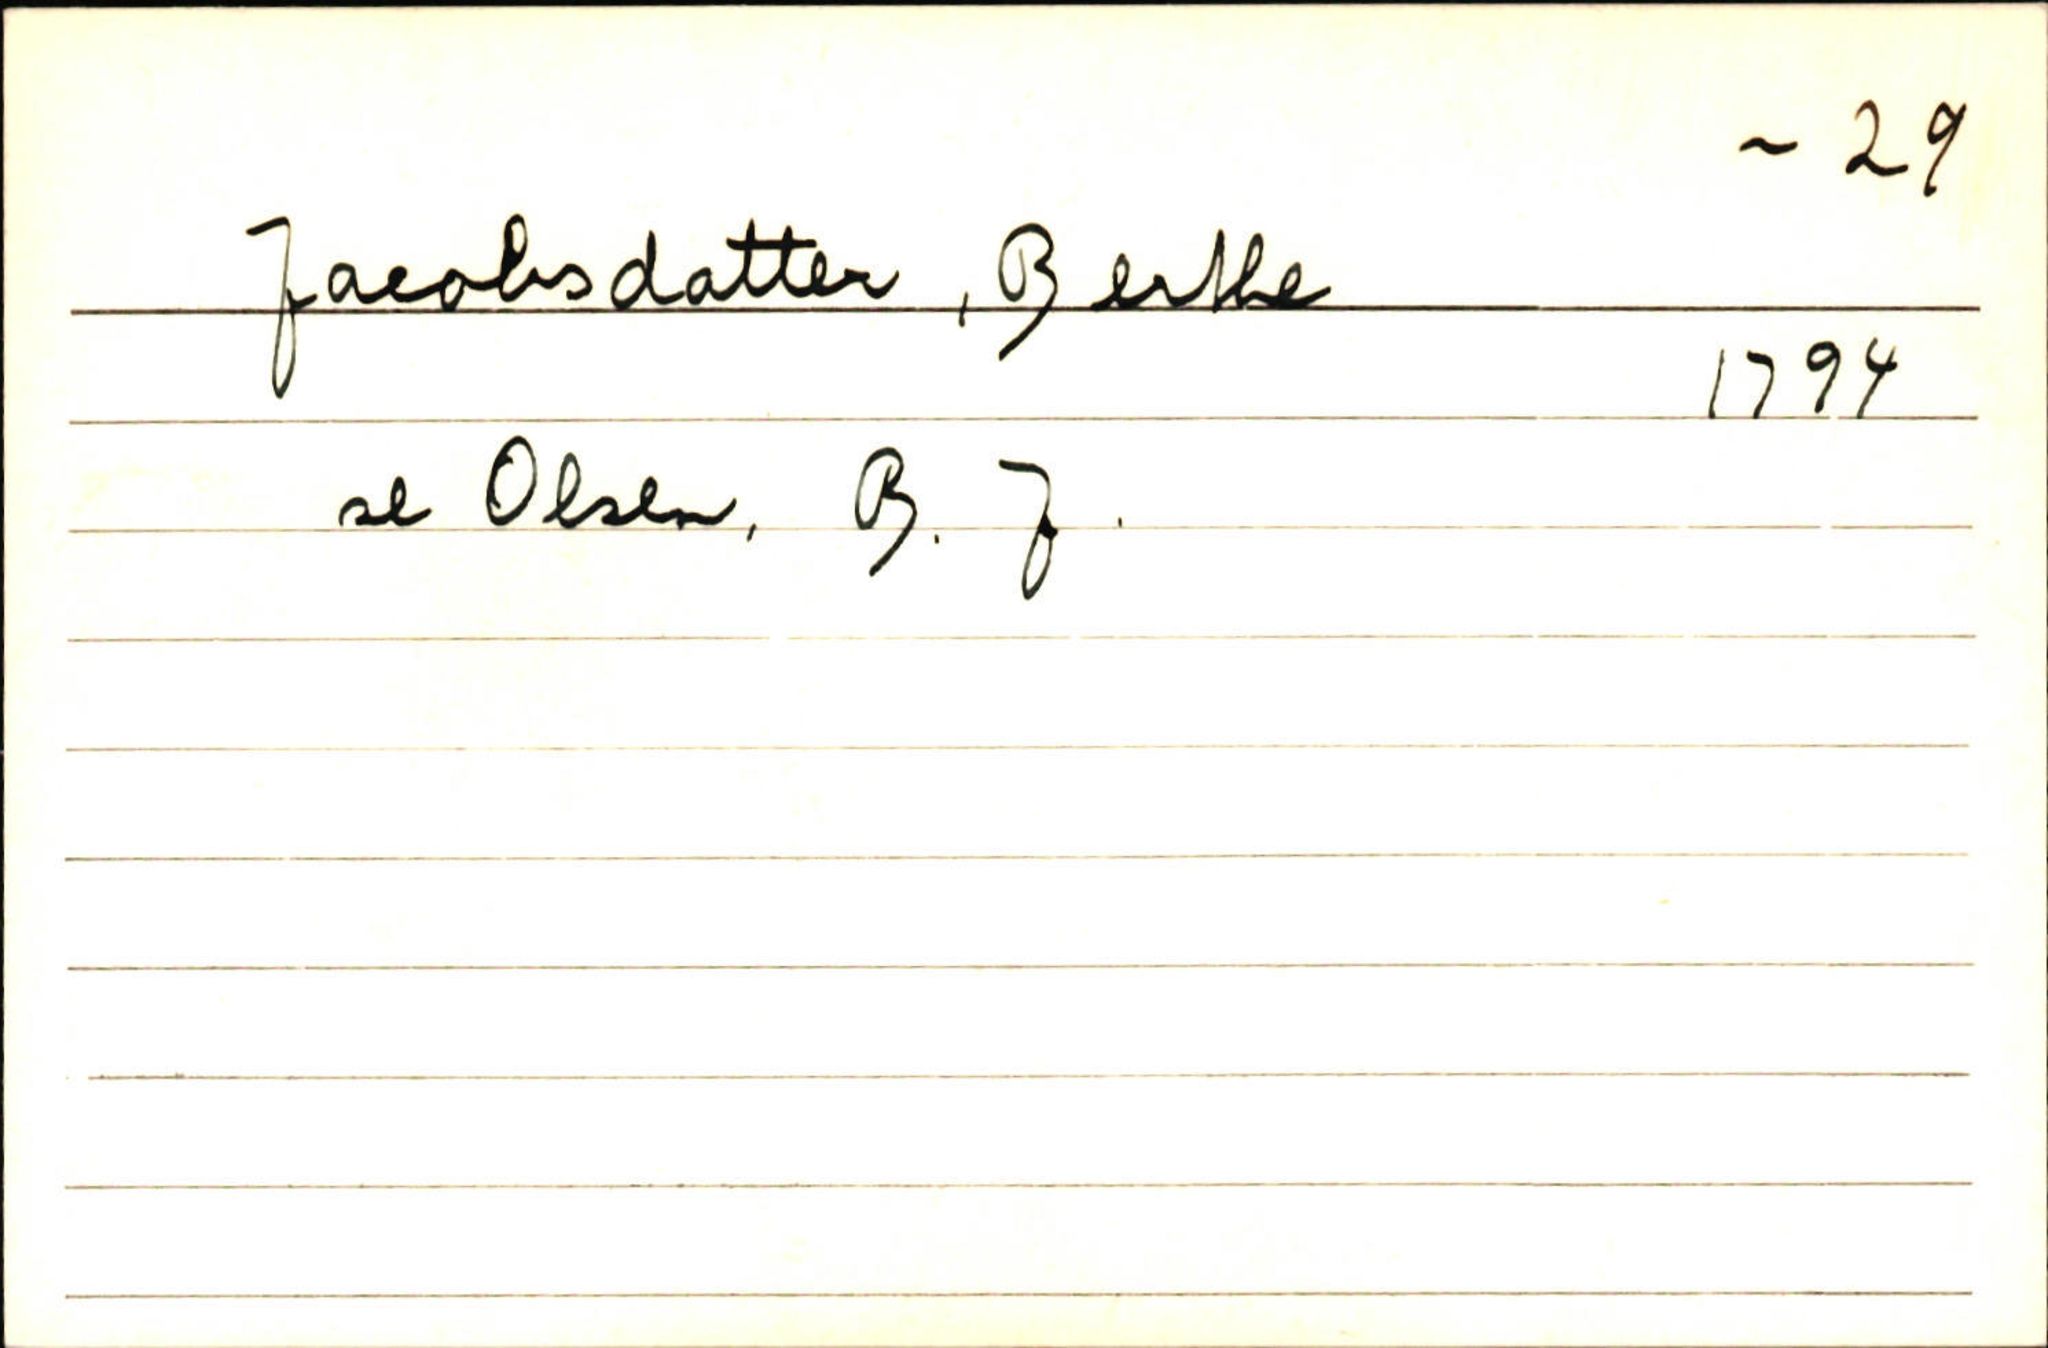 ~ 29
Jacobsdatter, Berthe
1794
se Olsen, B. J.